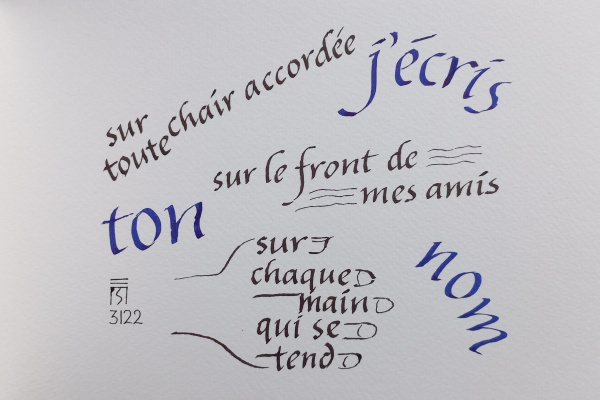 sur
toute chair accordée
j'écris
sur le front de
mes amis
ton
nom
sur
chaque
main
qui se
tend
3122